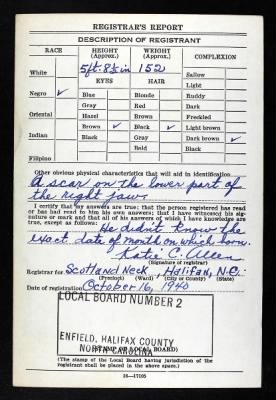 REGISTRAR'S REPORT
DESCRIPTION OF REGISTRANT
RACE HEIGHT (Approx.) WEIGHT (Approx.) COMPLEXION
White 5ft. 8½ in 152 Sallow
EYES HAIR Light
Negro ✓ Blue Blonde Ruddy
Gray Red Dark
Oriental Hazel Brown Freckled
Brown ✓ Black ✓ Light brown
Indian Black Gray Dark brown ✓
Bald Black
Filipino
Other obvious physical characteristics that will aid in identification
A scar on the lower part of
the right jaw.
I certify that my answers are true; that the person registered has read
or has had read to him his own answers; that I have witnessed his sig-
nature or mark and that all of his answers of which I have knowledge
are true, except as follows: He didn't know the
exact date of month on which born.
Kate C. Allen
(Signature of registrar)
Registrar for Scotland Neck, Halifax, N.C.
(Precinct) (Ward) (City or county)
Date of registration October 16, 1940
LOCAL BOARD NUMBER 2
ENFIELD, HALIFAX COUNTY
NORTH CAROLINA
(STAMP OF LOCAL BOARD)
(The stamp of the Local Board having jurisdiction of the registrant
shall be placed in the above space.)
16—17105